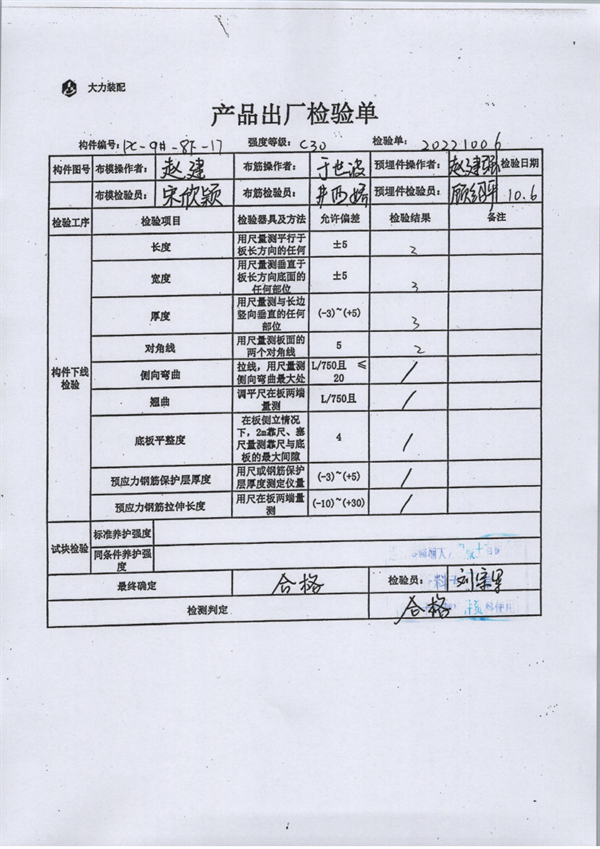 大力装配
产品出厂检验单
构件编号:PC-9#-8F-17 强度等级:C30 检验单:20221006
构件图号 布模操作者: 赵建 布筋操作者: 于世波 预埋件操作者: 赵建强 检验日期
布模检验员: 宋欣颖 布筋检验员: 预埋件检验员: 10.6
检验工序 检验项目 检验器具及方法 允许偏差 检验结果 备注
构件下线检验
长度 用尺量测平行于板长方向的任何 ±5 2
宽度 用尺量测垂直于板长方向底面的任何部位 ±5 3
厚度 用尺量测与长边竖向垂直的任何部位 (-3)~(+5) 3
对角线 用尺量测板面的两个对角线 5 2
侧向弯曲 拉线，用尺量测侧向弯曲最大处 L/750且 ≤20 /
翘曲 调平尺在板两端量测 L/750且 /
底板平整度 在板侧立情况下，2m靠尺、塞尺量测靠尺与底板的最大间隙 4 /
预应力钢筋保护层厚度 用尺或钢筋保护层厚度测定仪量 (-3)~(+5) /
预应力钢筋拉伸长度 用尺在板两端量测 (-10)~(+30) /
试块检验 标准养护强度
同条件养护强度
最终确定 合格 检验员:
检测判定 合格